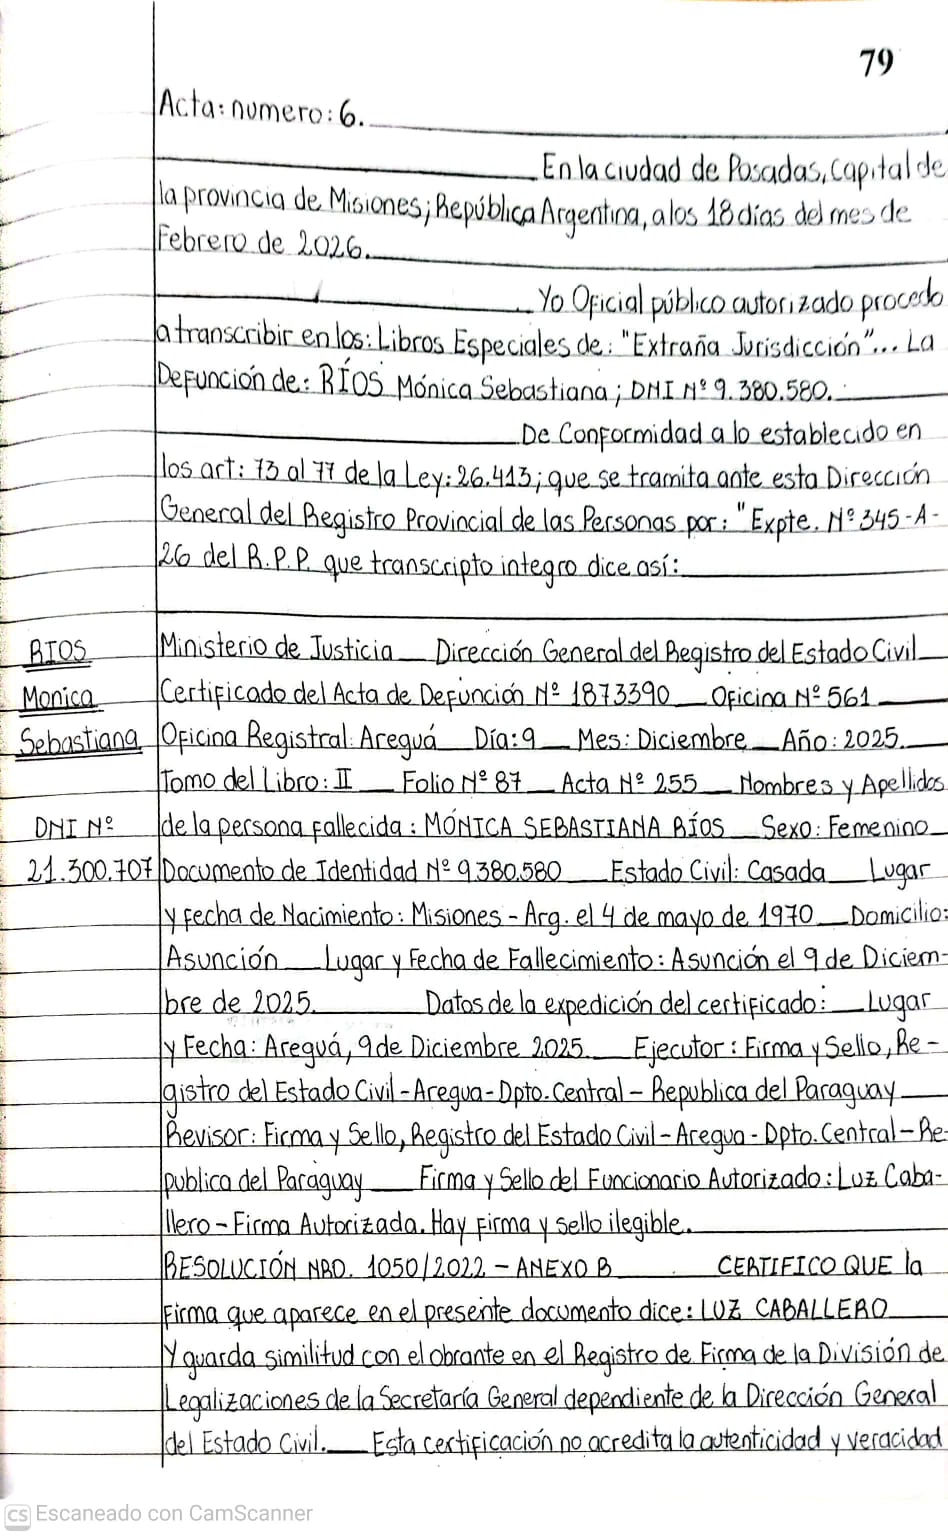 79
Acta: numero: 6.
En la ciudad de Posadas, Capital de
la provincia de Misiones; República Argentina, a los 18 días del mes de
Febrero de 2026.
Yo Oficial público autorizado procedo
a transcribir en los: Libros Especiales de: "Extraña Jurisdicción"... La
Defunción de: RÍOS Mónica Sebastiana; DNI Nº 9.380.580.
De Conformidad a lo establecido en
los art: 73 al 77 de la Ley: 26.413; que se tramita ante esta Dirección
General del Registro Provincial de las Personas por: "Expte. Nº 345-A-
26 del R.P.P. que transcripto integro dice así:
RIOS Ministerio de Justicia Dirección General del Registro del Estado Civil
Monica Certificado del Acta de Defunción Nº 1873390 Oficina Nº 561
Sebastiana Oficina Registral: Areguá Día: 9 Mes: Diciembre Año: 2025.
Tomo del Libro: II Folio Nº 87 Acta Nº 255 Nombres y Apellidos
DNI Nº de la persona fallecida: MÓNICA SEBASTIANA RÍOS Sexo: Femenino
21.300.707 Documento de Identidad Nº 9.380.580 Estado Civil: Casada Lugar
y fecha de Nacimiento: Misiones - Arg. el 4 de mayo de 1970 Domicilio:
Asunción Lugar y Fecha de Fallecimiento: Asunción el 9 de Diciem-
bre de 2025. Datos de la expedición del certificado: Lugar
y Fecha: Areguá, 9 de Diciembre 2025. Ejecutor: Firma y Sello, Re-
gistro del Estado Civil - Aregua - Dpto. Central - Republica del Paraguay
Revisor: Firma y Sello, Registro del Estado Civil - Aregua - Dpto. Central - Re-
publica del Paraguay Firma y Sello del Funcionario Autorizado: Luz Caba-
llero - Firma Autorizada. Hay firma y sello ilegible.
RESOLUCIÓN NRO. 1050/2022 - ANEXO B CERTIFICO QUE la
Firma que aparece en el presente documento dice: LUZ CABALLERO
Y guarda similitud con el obrante en el Registro de Firma de la División de
Legalizaciones de la Secretaría General dependiente de la Dirección General
del Estado Civil. Esta certificación no acredita la autenticidad y veracidad
CS Escaneado con CamScanner